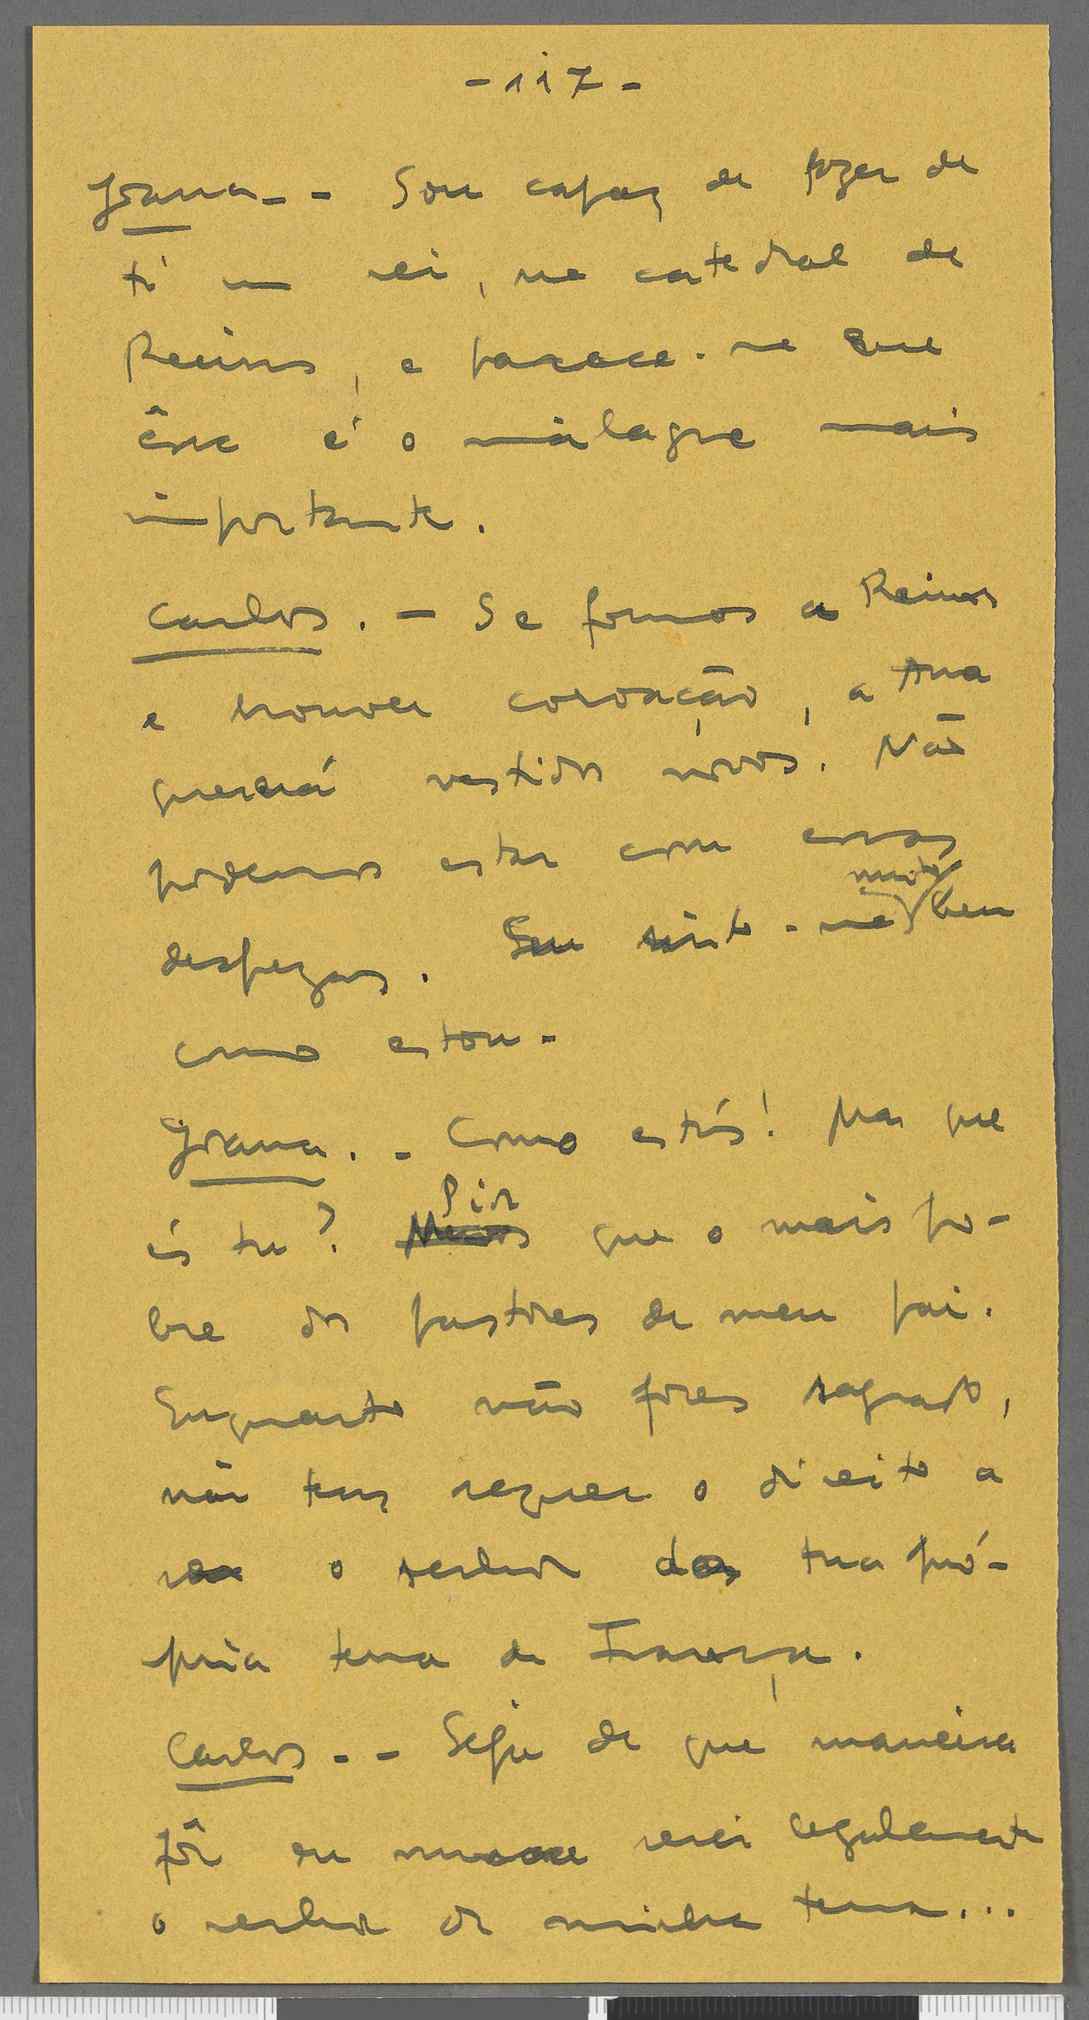 - 117 -
Joana. - Sou capaz de fazer de
ti um rei, na catedral de
Reims, e parece-me que
êsse é o milagre mais
importante.
Carlos. - Se formos a Reims
e houver coroação, a Ana
quererá vestidos novos. Não
podemos estar com essas
muito
despezas. Eu sinto-me bem
como estou.
Joana. - Como estás! Mas que
és tu? Menos Pior que o mais po-
bre dos pastores de meu pai.
Enquanto não fores sagrado,
não tens sequer o direito a
ser o senhor da tua pró-
pria terra de França.
Carlos. - Seja de que maneira
fôr eu nunca serei legalmente
o senhor de minha terra...